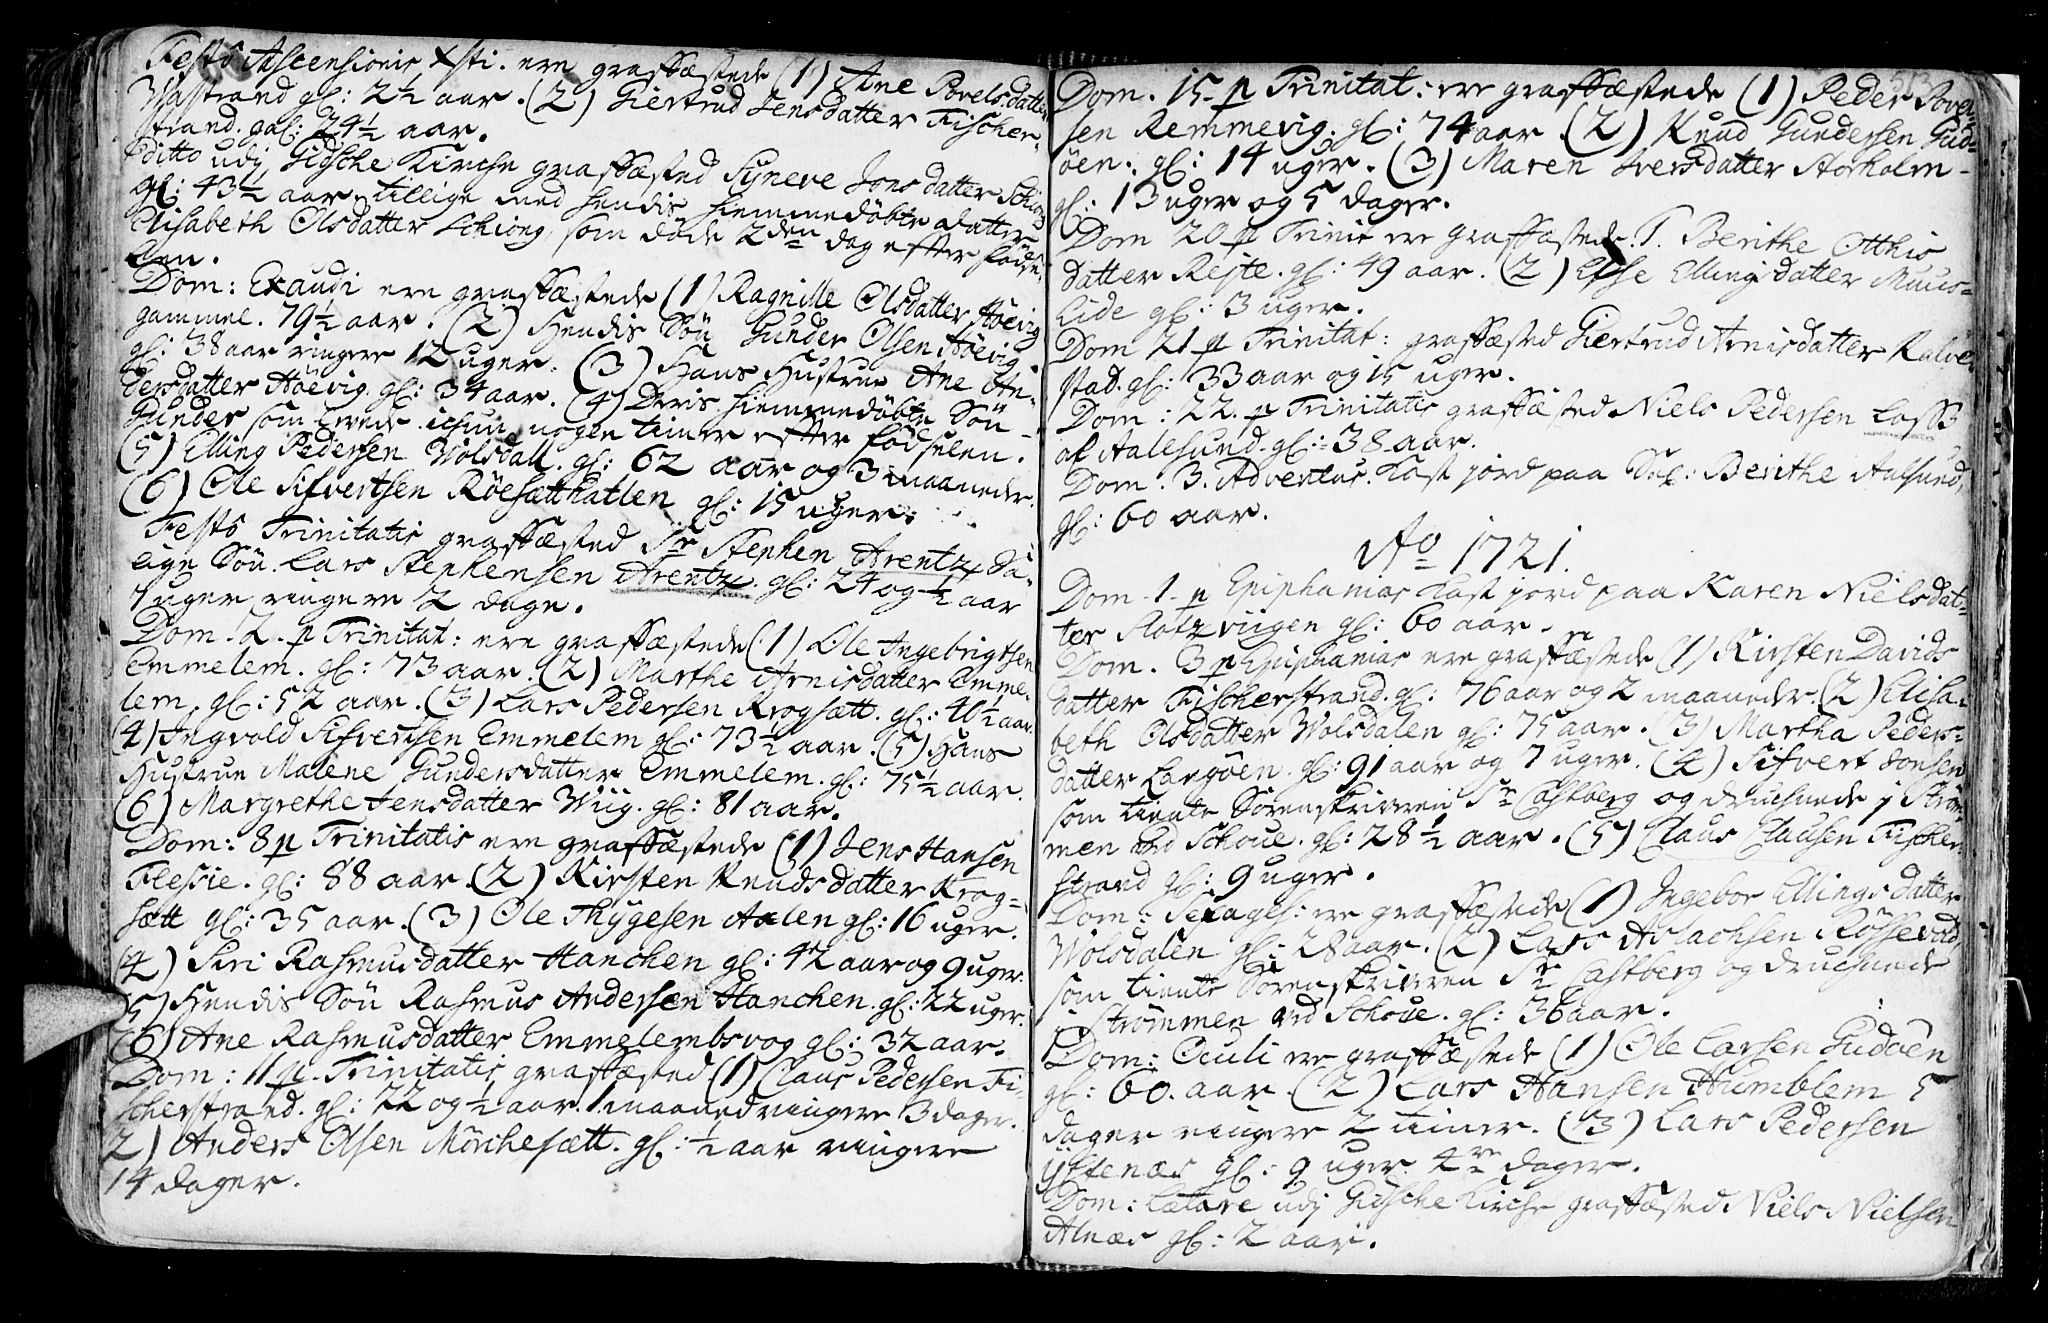 Festô Ascensionis Xsti. ere graffæstede (1) Ane Povelsdatter
Wastrand gl: 2½ aar. (2) Giertrud Jensdatter Fischer-
strand. gal: 24½ aar.
Ditto udj Gidsche Kirche graffæsted Syneve Jonsdatter Schiong
gl: 43½ aar, tillige med hendis hiemmedöbte datter
Elisabeth Olsdatter Schiong, som døde 2den dag efter födse-
len.
Dom: Exaudi ere graffæstede (1) Ragnille Olsdatter Höevig
gammel. 79½ aar. (2) Hendis Sön Gunder Olsen Höevig
gl: 38 aar ringere 12 uger. (3) Hans Hustrue Ane An-
dersdatter Höevig. gl: 34 aar. (4) Deris hiemmedöbte Sön
Gunder som levede ichun nogen timer efter födselen.
(5) Elling Pedersen Wolsdall. gl: 62 aar og 3 maaneder.
(6) Ole Sifvertsen Röesætthatlen gl: 15 uger.
Festô Trinitatis graffæsted Sr Stephen Arentz Sa-
lige Sön. Lars Stephensen Arentz. gl: 24 og ½ aar
1 uger ringere 2 dage.
Dom. 2. p Trinitat: ere graffæstede (1) Ole Ingebrigtsen
Emmelem. gl: 73 aar. (2) Marthe Arnisdatter Emme-
lem, gl: 52 aar. (3) Lars Pedersen Krogsætt. gl: 40½ aar.
(4) Ingvold Sifvertsen Emmelem gl: 73½ aar. (5) Hans
Hustrue Malene Gundersdatter Emmelem. gl: 75½ aar.
(6) Margrethe Jensdatter Wiig. gl: 81 aar.
Dom: 8 p Trinitatis ere graffæstede (1) Jens Hansen
Flessie. gl: 88 aar. (2) Kirsten Knudsdatter Krog-
sætt gl: 35 aar. (3) Ole Thygesen Aalen gl: 16 uger.
(4) Siri Rasmusdatter Hanchen gl: 42 aar og 9 uger.
(5) Hendis Sön Rasmus Andersen Hanchen. gl: 22 uger.
(6) Ane Rasmusdatter Emmelemsvog gl: 32 aar.
Dom: 11 p. Trinitatis graffæsted (1) Claus Pedersen Fi-
scherstrand. gl: 22 og ½ aar 1 maaned ringere 3 dager.
2) Anders Olsen Mörchesætt. gl: ½ aar ringere
14 dager.
Dom. 15 p Trinitat: ere graffæstede (1) Peder Povel-
sen Remmevig. gl: 74 aar. (2) Knud Gundersen Gud-
öen. gl: 14 uger. (3) Maren Iversdatter Aorholm-
gl: 13 uger og 5 dager.
Dom 20 p Trinit ere graffæstede. 1. Berithe Otthis
datter Rejte. gl: 49 aar. (2) Else Ellingsdatter Muus-
lide gl: 3 uger.
Dom 21 p Trinitat: graffæsted Giertrud Arnisdatter Kalve-
stad. gl: 33 aar og 15 uger.
Dom: 22. p Trinitatis graffæsted Niels Pedersen Loss
af Aallesund. gl: 38 aar.
Dom. 3. Adventus. Kast jord paa Sal: Berithe Aalsund,
gl: 60 aar.
Ao 1721.
Dom. 1. p Epiphanias Kast jord paa Karen Nielsdat-
ter Slotzviigen gl: 60 aar.
Dom. 3 p Epiphanias ere graffæstede (1) Kirsten Davids
datter Fischerstrand. gl: 76 aar og 2 maaneder. (2) Elisa-
beth Olsdatter Wolsdalen gl: 75 aar. (3) Martha Peders-
datter Langöen. gl: 91 aar og 7 uger. (4) Sifvert Jonsen
som tiente Sorenskriveren Sr Castberg og druchnede i Ström-
men ved Schoue. gl: 28½ aar. (5) Claus Clausen Fischer-
strand gl: 9 uger.
Dom: Sexages: ere graffæstede (1) Ingebor Ellingsdatter
Wolsdalen gl: 28 aar. (2) Lars Aslachsen Rössevold,
som tiente Sorenskriveren Sr Castberg og druchnede
i Strömmen ved Schoue. gl: 36 aar.
Dom: Oculi ere graffæstede (1) Ole Larsen Gudöen
gl: 60. aar. (2) Lars Hansen Humblem 5
dager ringere 2 timer. (3) Lars Pedersen
ÿstenæs gl: 9 uger 4re dager.
Dom: Lætare udj Gidsche Kirche graffæsted Niels Nielsen
Alnæs gl: 2 aar.